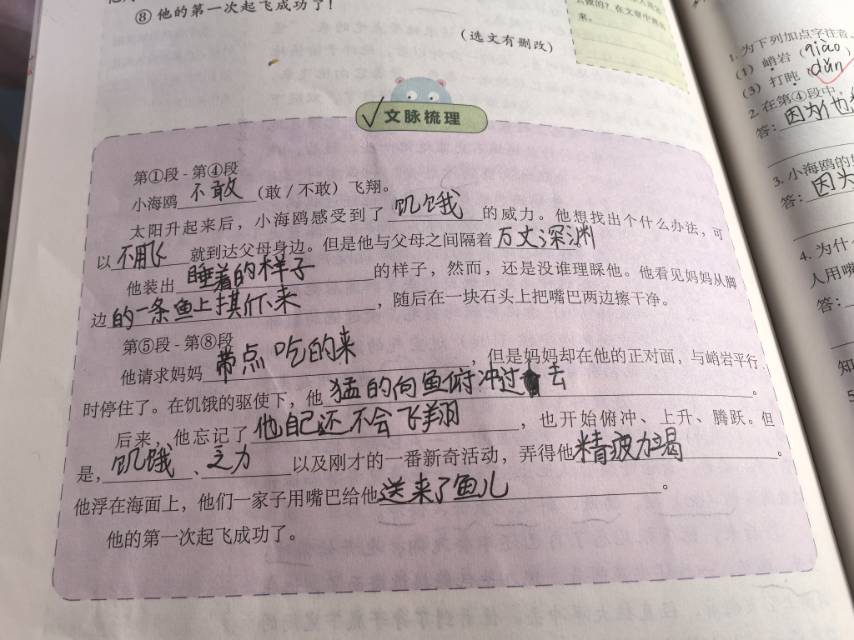 ⑧ 他的第一次起飞成功了！
（选文有删改）
来。
文脉梳理
第①段 - 第④段
小海鸥 不敢 （敢 / 不敢）飞翔。
太阳升起来后，小海鸥感受到了 饥饿 的威力。他想找出个什么办法，可
以 不用飞 就到达父母身边。但是他与父母之间隔着 万丈深渊
他装出 睡着的样子 的样子，然而，还是没谁理睬他。他看见妈妈从脚
边 的一条鱼上 下来 ，随后在一块石头上把嘴巴两边擦干净。
第⑤段 - 第⑧段
他请求妈妈 带点吃的来 ，但是妈妈却在他的正对面，与峭岩平行
时停住了。在饥饿的驱使下，他 猛的向鱼俯冲过去 。
后来，他忘记了 他自己还不会飞翔 ，也开始俯冲、上升、腾跃。但
是， 饥饿 、 乏力 以及刚才的一番新奇活动，弄得他 精疲力竭 。
他浮在海面上，他们一家子用嘴巴给他 送来了鱼儿 。
他的第一次起飞成功了。
1. 为下列加点字注音。
（1）峭岩（qiào）
（3）打盹（dǔn
2. 在第④段中，
答：因为他
3. 小海鸥的
答：因为
4. 为什
人用嘴
答：
知
5